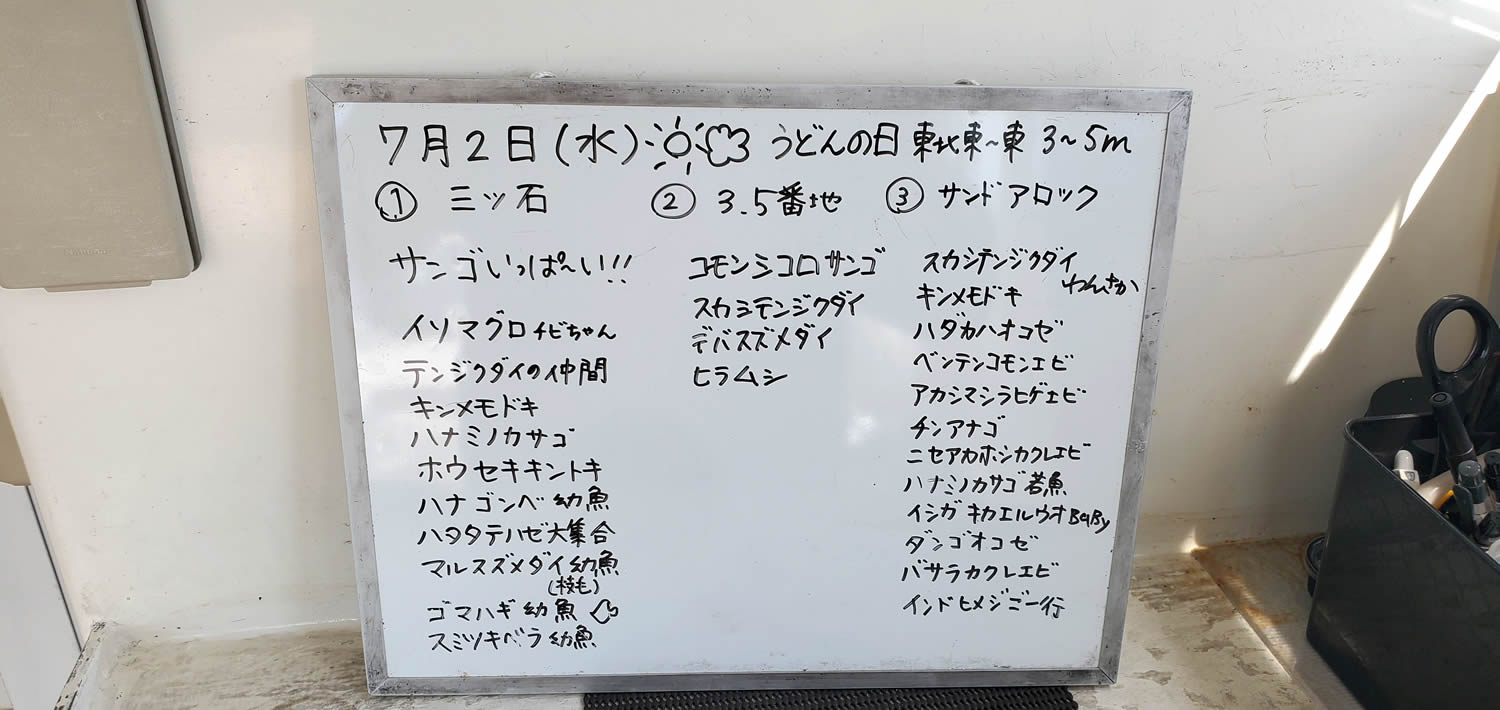 7月2日(水) うどんの日 東北東~東 3~5m
① 三ッ石
サンゴいっぱ~い!!
イソマグロチビちゃん
テンジクダイの仲間
キンメモドキ
ハナミノカサゴ
ホウセキキントキ
ハナゴンベ幼魚
ハタタテハゼ大集合
マルスズメダイ幼魚
ゴマハギ幼魚
スミツキベラ幼魚
② 3.5番地
コモンシコロサンゴ
スカシテンジクダイ
デバスズメダイ
ヒラムシ
③ サンドアロック
スカシテンジクダイ
わんさか
キンメモドキ
ハダカハオコゼ
ベンテンコモンエビ
アカシマシラヒゲエビ
チンアナゴ
ニセアカホシカクレエビ
ハナミノカサゴ若魚
イシガキカエルウオBaBy
ダンゴオコゼ
バサラカクレエビ
インドヒメジご一行